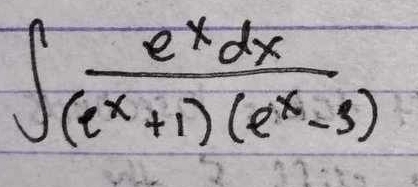 ∫ e^x dx / (e^x + 1) (e^x - 3)